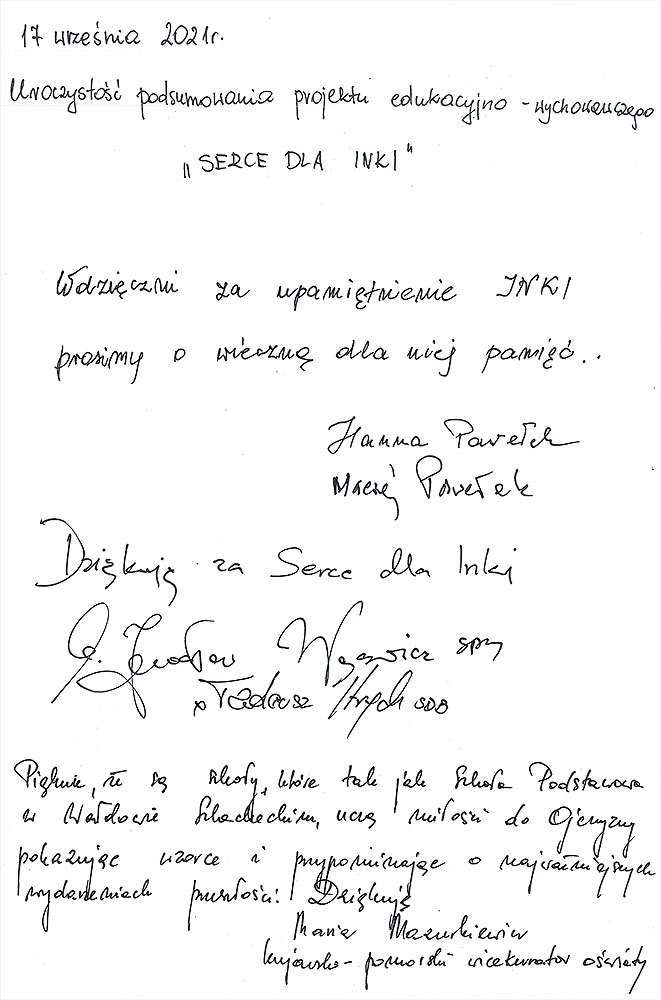 17 września 2021r.
Uroczystość podsumowania projektu edukacyjno - wychowawczego
„SERCE DLA INKI"
Wdzięczni za upamiętnienie INKI
prosimy o wieczną dla niej pamięć..
Hanna Pawełek
Maciej Pawełek
Dziękuję za Serce dla Inki
Wąsowicz
x Tadeusz SDB
Pięknie, że są szkoły, które tak jak Szkoła Podstawowa
w Wałdowie Szlacheckim, uczą miłości do Ojczyzny
pokazując wzorce i przypominając o najważniejszych
wydarzeniach przeszłości! Dziękuję
Maria Mazurkiewicz
kujawsko - pomorski wicekurator oświaty